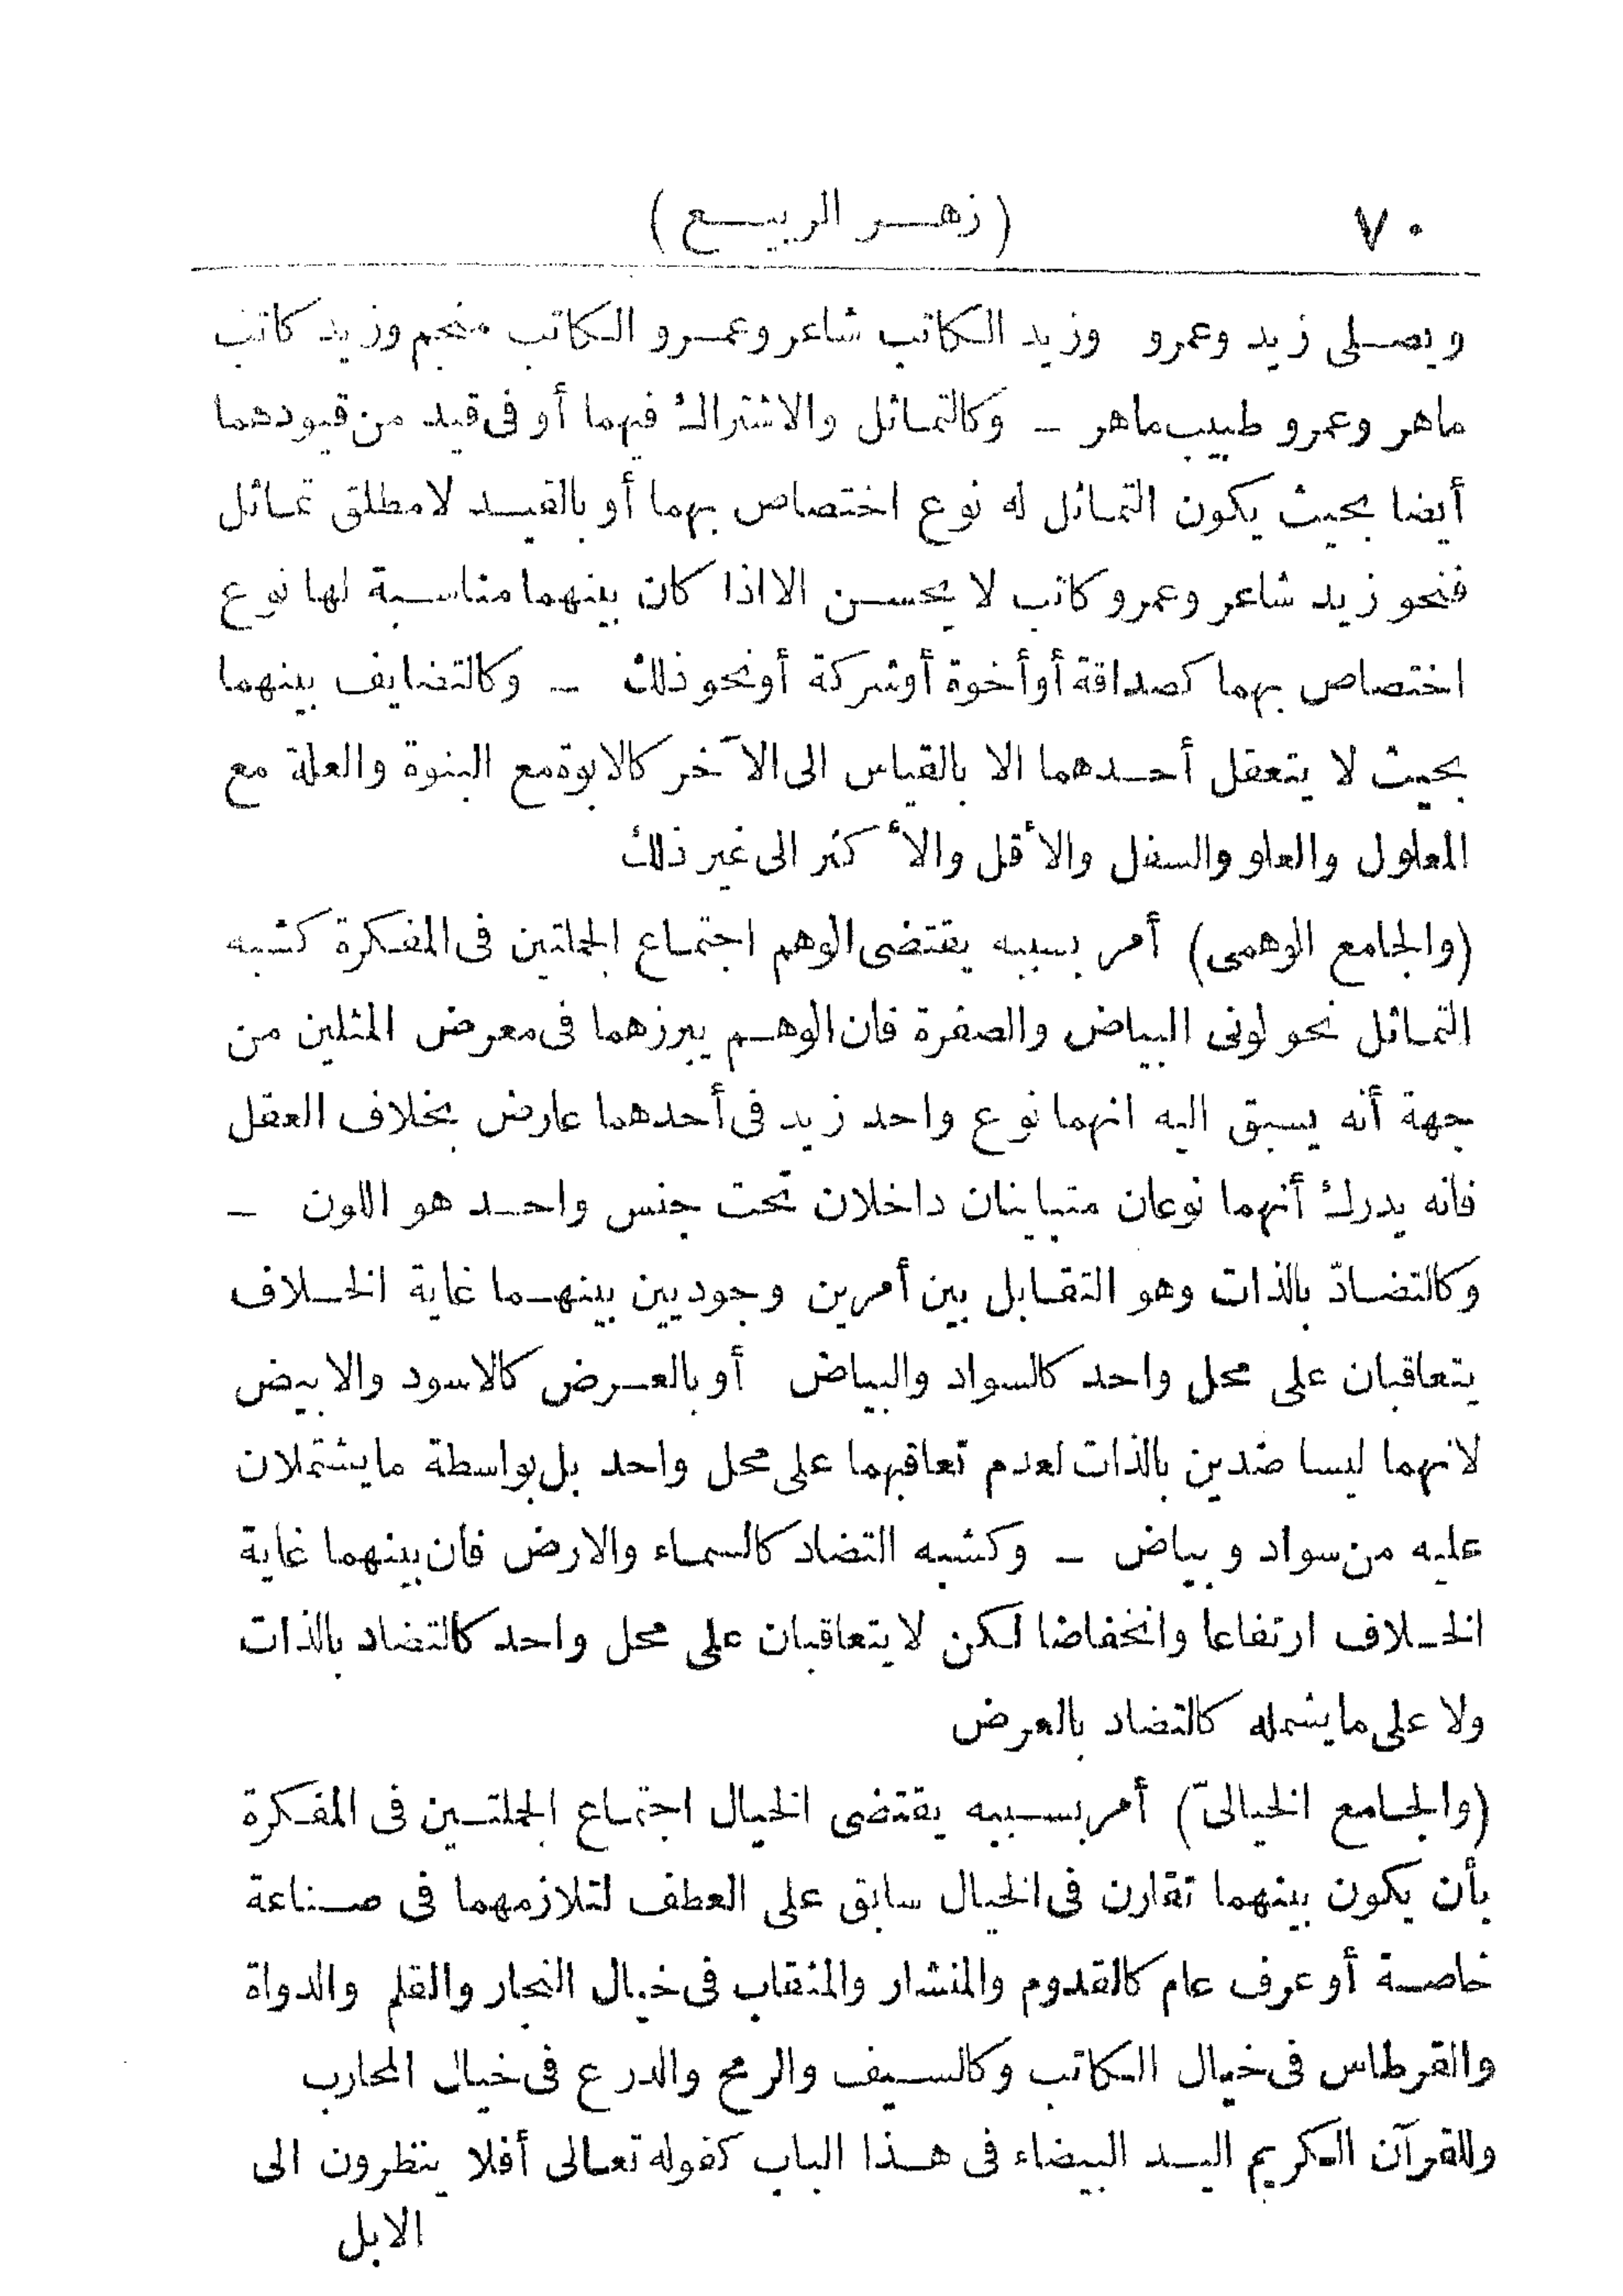 ٧٠
(زهر الربيع)
ويصلى زيد وعمرو وزيد الكاتب شاعر وعمرو الكاتب منجم وزيد كاتب
ماهر وعمرو طبيب ماهر ـ وكالتماثل والاشتراك فيهما أو فى قيد من قيودهما
أيضا بحيث يكون التماثل له نوع اختصاص بهما أو بالقيد لا مطلق تماثل
فنحو زيد شاعر وعمرو كاتب لا يحسن الا اذا كان بينهما مناسبة لها نوع
اختصاص بهما كصداقة أو أخوة أو شركة أو نحو ذلك ـ وكالتضايف بينهما
بحيث لا يتعقل أحدهما الا بالقياس الى الآخر كالابوة مع البنوة والعلة مع
المعلول والعلو والسفل والأقل والأكثر الى غير ذلك
(والجامع الوهمى) أمر بسببه يقتضى الوهم اجتماع الجملتين فى المفكرة كشبه
التماثل نحو لونى البياض والصفرة فان الوهم يبرزهما فى معرض المثلين من
جهة أنه يسبق اليه انهما نوع واحد زيد فى أحدهما عارض بخلاف العقل
فانه يدرك أنهما نوعان متباينان داخلان تحت جنس واحد هو اللون ـ
وكالتضادّ بالذات وهو التقابل بين أمرين وجوديين بينهما غاية الخلاف
يتعاقبان على محل واحد كالسواد والبياض أو بالعرض كالاسود والابيض
لانهما ليسا ضدين بالذات لعدم تعاقبهما على محل واحد بل بواسطة ما يشتملان
عليه من سواد وبياض ـ وكشبه التضاد كالسماء والارض فان بينهما غاية
الخلاف ارتفاعا وانخفاضا لكن لا يتعاقبان على محل واحد كالتضاد بالذات
ولا على ما يشمله كالتضاد بالعرض
(والجامع الخيالىّ) أمر بسببه يقتضى الخيال اجتماع الجملتين فى المفكرة
بأن يكون بينهما تقارن فى الخيال سابق على العطف لتلازمهما فى صناعة
خاصة أو عرف عام كالقدوم والمنشار والمثقاب فى خيال النجار والقلم والدواة
والقرطاس فى خيال الكاتب وكالسيف والرمح والدرع فى خيال المحارب
وللقرآن الكريم اليد البيضاء فى هذا الباب كقوله تعالى أفلا ينظرون الى
الابل